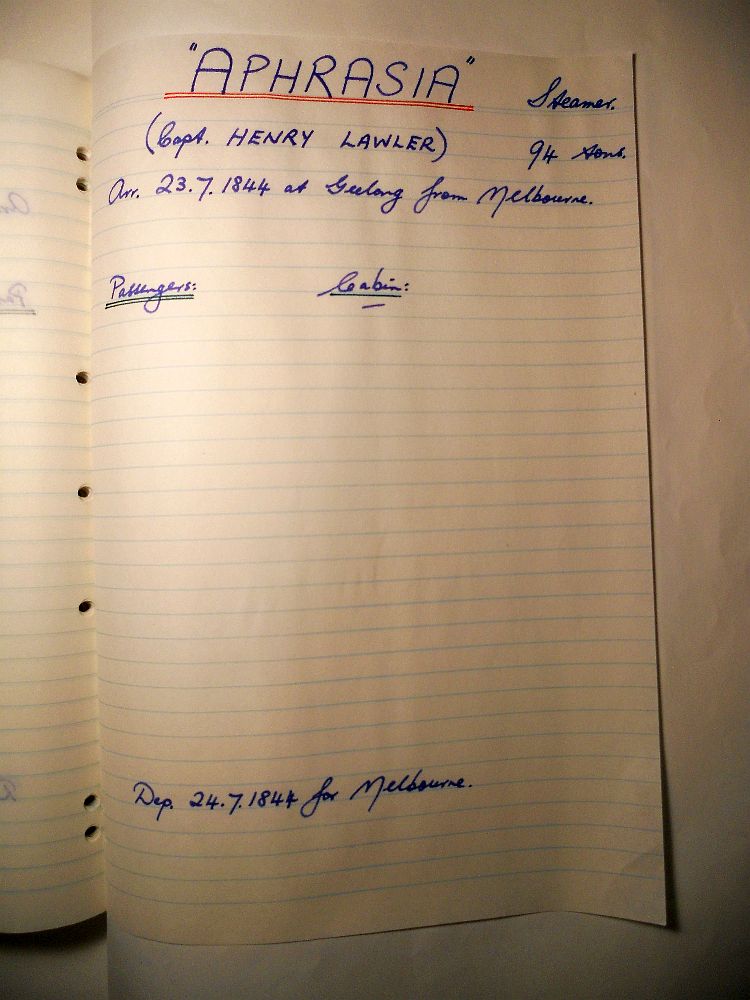 "APHRASIA" Steamer.
(Capt. HENRY LAWLER) 94 tons.
Arr. 23.7.1844 at Geelong from Melbourne.
Passengers: Cabin:
Dep. 24.7.1844 for Melbourne.